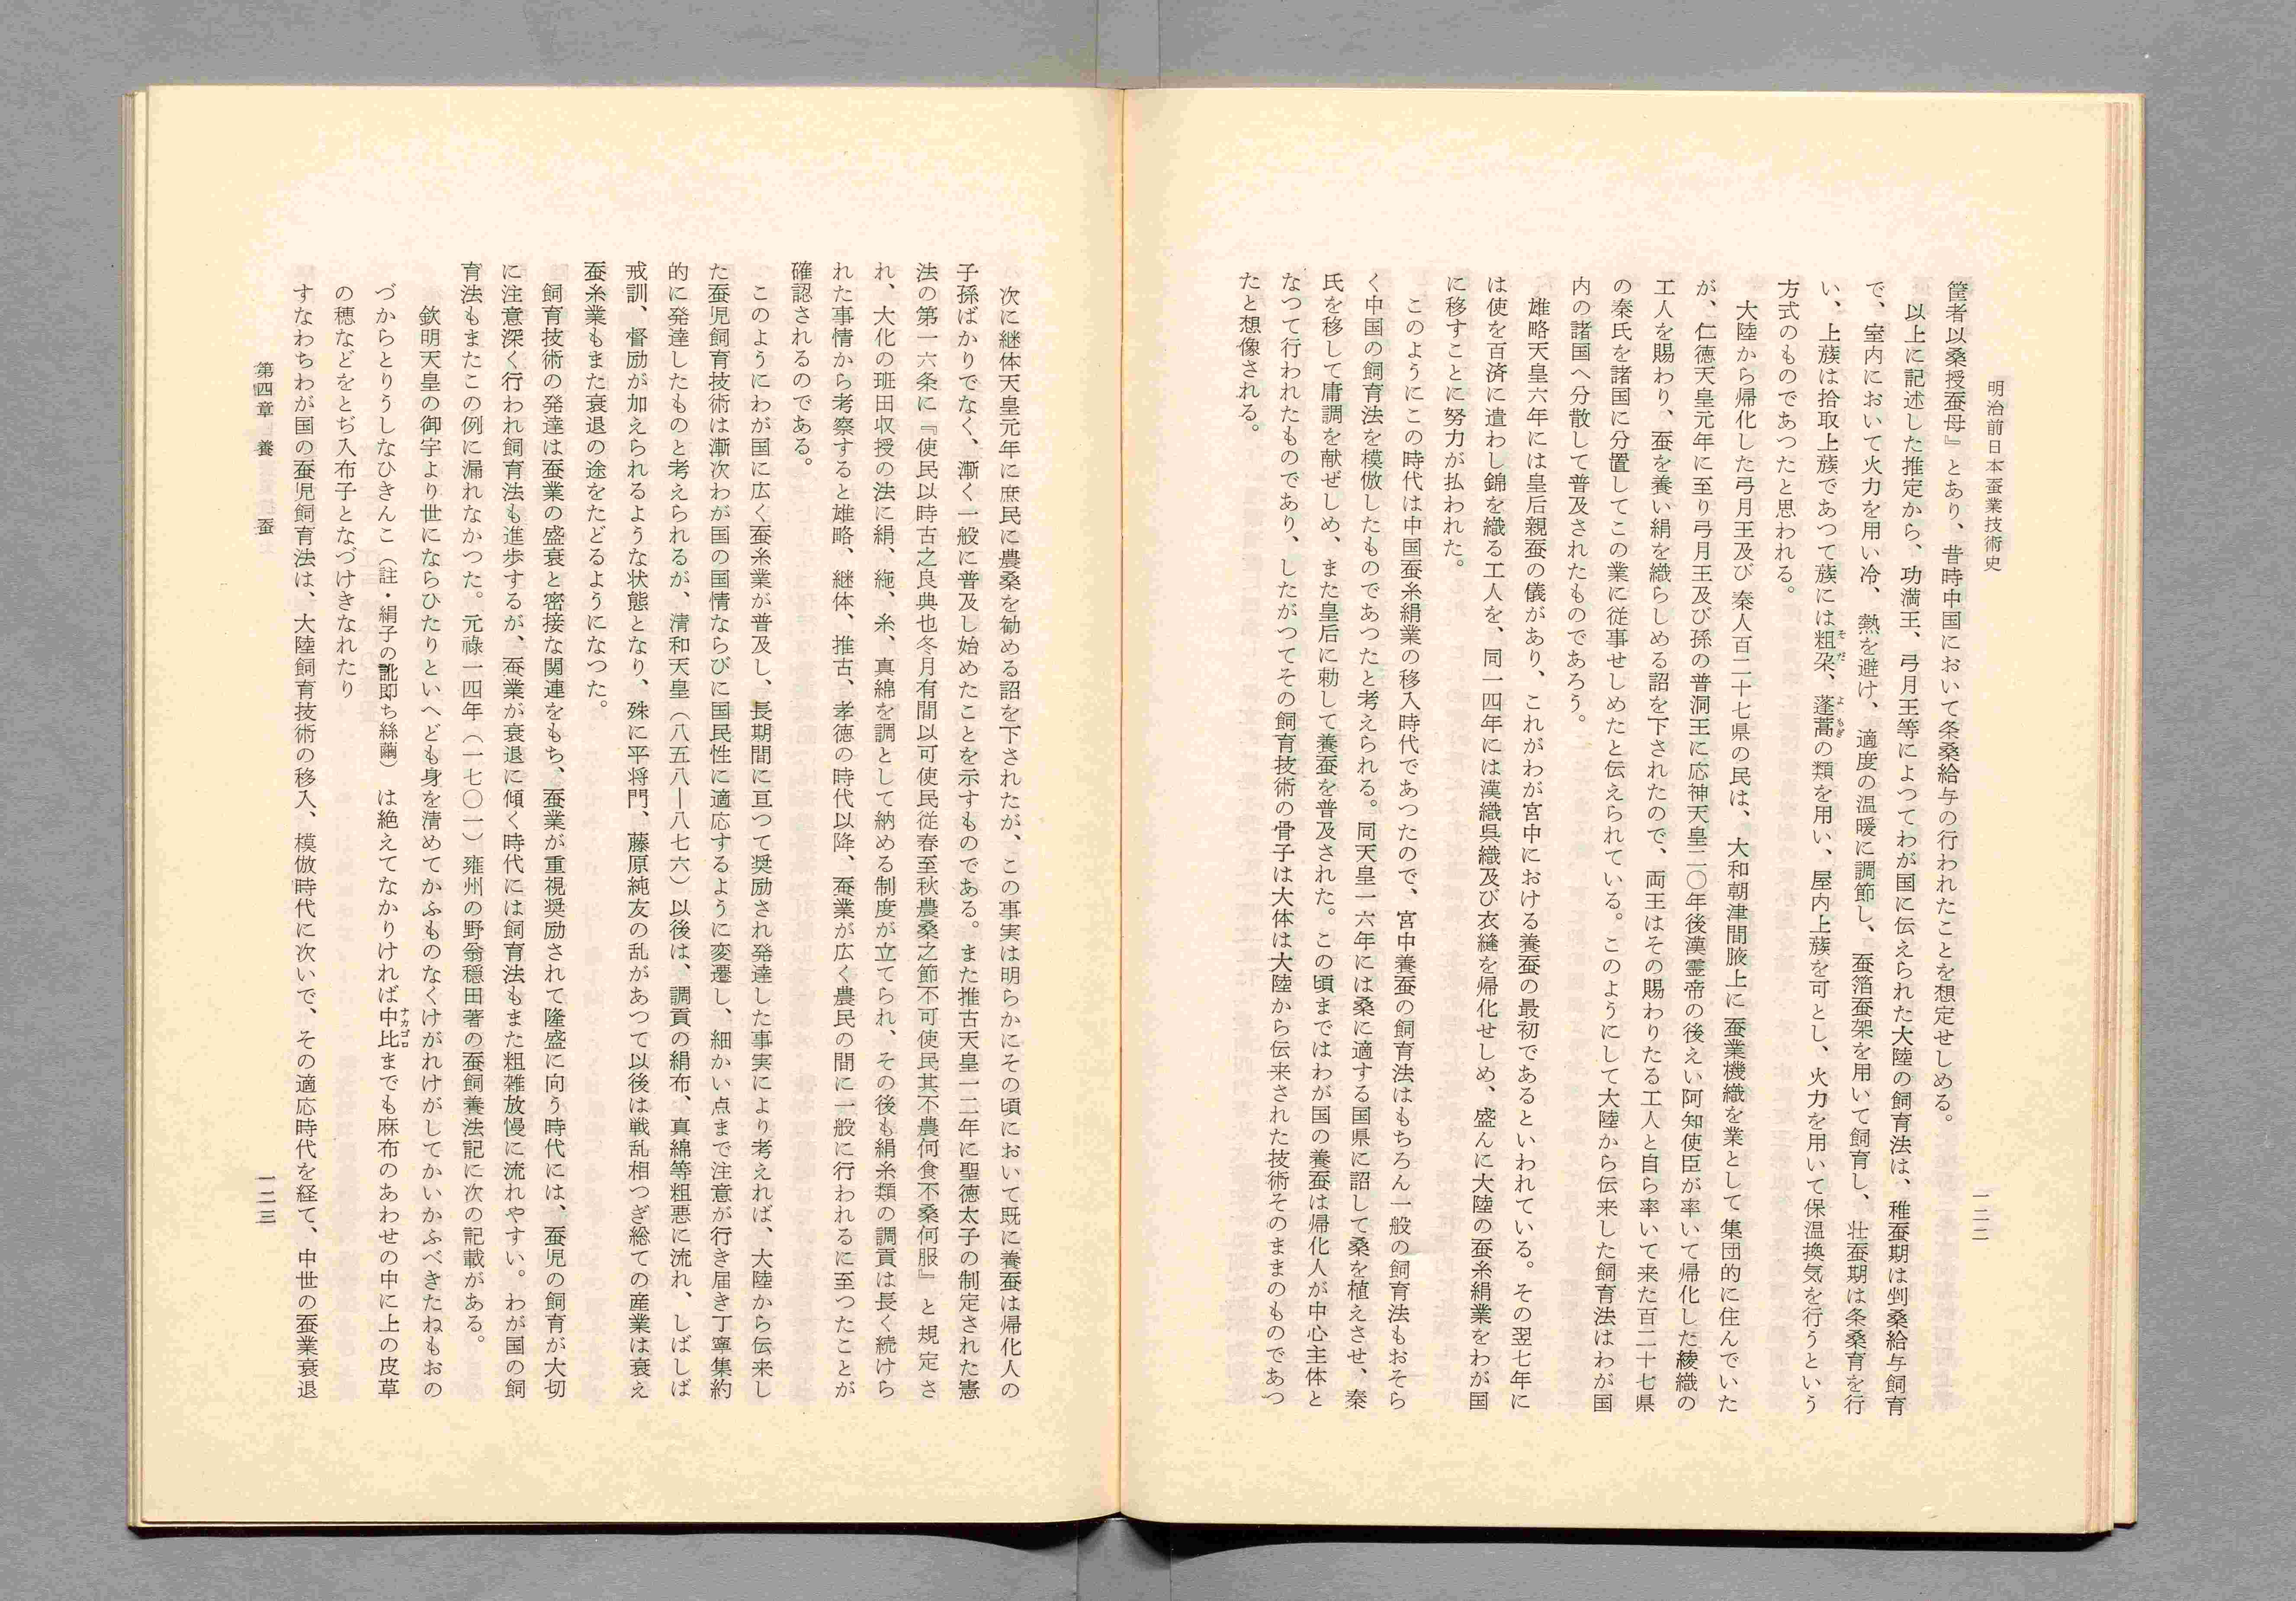 明治前日本蚕業技術史
一二二
筐者以桑授蚕母』とあり、昔時中国において条桑給与の行われたことを想定せしめる。
以上に記述した推定から、功満王、弓月王等によつてわが国に伝えられた大陸の飼育法は、稚蚕期は剉桑給与飼育
で、室内において火力を用い冷、熱を避け、適度の温暖に調節し、蚕箔蚕架を用いて飼育し、壮蚕期は条桑育を行
い、上蔟は拾取上蔟であつて蔟には粗朶、蓬蒿の類を用い、屋内上蔟を可とし、火力を用いて保温換気を行うという
方式のものであつたと思われる。
大陸から帰化した弓月王及び秦人百二十七県の民は、大和朝津間腋上に蚕業機織を業として集団的に住んでいた
が、仁徳天皇元年に至り弓月王及び孫の普洞王に応神天皇二〇年後漢霊帝の後えい阿知使臣が率いて帰化した綾織の
工人を賜わり、蚕を養い絹を織らしめる詔を下されたので、両王はその賜わりたる工人と自ら率いて来た百二十七県
の秦氏を諸国に分置してこの業に従事せしめたと伝えられている。このようにして大陸から伝来した飼育法はわが国
内の諸国へ分散して普及されたものであろう。
雄略天皇六年には皇后親蚕の儀があり、これがわが宮中における養蚕の最初であるといわれている。その翌七年に
は使を百済に遣わし錦を織る工人を、同一四年には漢織呉織及び衣縫を帰化せしめ、盛んに大陸の蚕糸絹業をわが国
に移すことに努力が払われた。
このようにこの時代は中国蚕糸絹業の移入時代であつたので、宮中養蚕の飼育法はもちろん一般の飼育法もおそら
く中国の飼育法を模倣したものであつたと考えられる。同天皇一六年には桑に適する国県に詔して桑を植えさせ、秦
氏を移して庸調を献ぜしめ、また皇后に勅して養蚕を普及された。この頃まではわが国の養蚕は帰化人が中心主体と
なつて行われたものであり、したがつてその飼育技術の骨子は大体は大陸から伝来された技術そのままのものであつ
たと想像される。
次に継体天皇元年に庶民に農桑を勧める詔を下されたが、この事実は明らかにその頃において既に養蚕は帰化人の
子孫ばかりでなく、漸く一般に普及し始めたことを示すものである。また推古天皇一二年に聖徳太子の制定された憲
法の第一六条に『使民以時古之良典也冬月有間以可使民従春至秋農桑之節不可使民其不農何食不桑何服』と規定さ
れ、大化の班田収授の法に絹、絁、糸、真綿を調として納める制度が立てられ、その後も絹糸類の調貢は長く続けら
れた事情から考察すると雄略、継体、推古、孝徳の時代以降、蚕業が広く農民の間に一般に行われるに至つたことが
確認されるのである。
このようにわが国に広く蚕糸業が普及し、長期間に亘つて奨励され発達した事実により考えれば、大陸から伝来し
た蚕児飼育技術は漸次わが国の国情ならびに国民性に適応するように変遷し、細かい点まで注意が行き届き丁寧集約
的に発達したものと考えられるが、清和天皇（八五八―八七六）以後は、調貢の絹布、真綿等粗悪に流れ、しばしば
戒訓、督励が加えられるような状態となり、殊に平将門、藤原純友の乱があつて以後は戦乱相つぎ総ての産業は衰え
蚕糸業もまた衰退の途をたどるようになつた。
飼育技術の発達は蚕業の盛衰と密接な関連をもち、蚕業が重視奨励されて隆盛に向う時代には、蚕児の飼育が大切
に注意深く行われ飼育法も進歩するが、蚕業が衰退に傾く時代には飼育法もまた粗雑放慢に流れやすい。わが国の飼
育法もまたこの例に漏れなかつた。元祿一四年（一七〇一）雍州の野翁穏田著の蚕飼養法記に次の記載がある。
欽明天皇の御宇より世にならひたりといへども身を清めてかふものなくけがれけがしてかいかふべきたねもおの
づからとりうしなひきんこ（註・絹子の訛即ち絲繭）は絶えてなかりければ中比までも麻布のあわせの中に上の皮草
の穂などをとぢ入布子となづけきなれたり
すなわちわが国の蚕児飼育法は、大陸飼育技術の移入、模倣時代に次いで、その適応時代を経て、中世の蚕業衰退
第四章 養 蚕
一二三